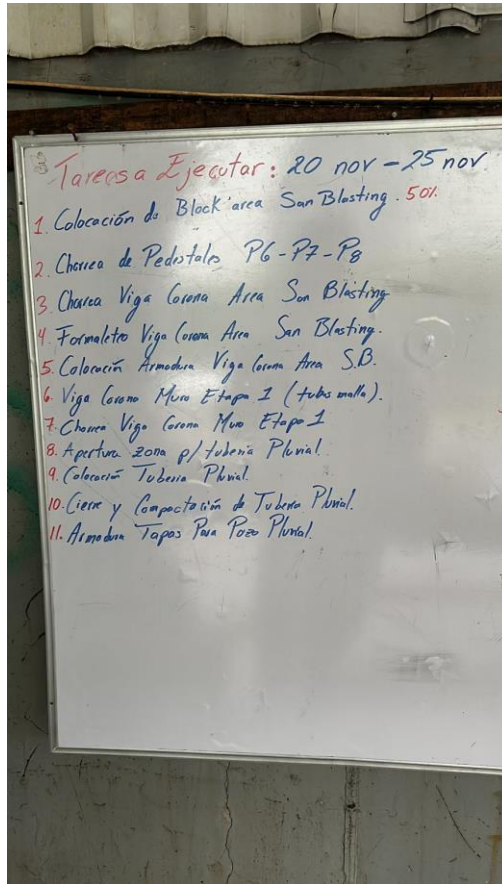 Tareas a Ejecutar: 20 nov - 25 nov
1. Colocación de Block area San Blasting. 50%
2. Chorrea de Pedestales P6-P7-P8
3. Chorrea Viga Corona Area San Blasting
4. Formaleteo Viga Corona Area San Blasting.
5. Colocación Armadura Viga Corona Area S.B.
6. Viga Corona Muro Etapa 1 (tubos malla).
7. Chorrea Viga Corona Muro Etapa 1
8. Apertura zona p/ tuberia Pluvial.
9. Colocación Tuberia Pluvial.
10. Cierre y Compactación de Tuberia Pluvial.
11. Armadura Tapas Para Pozo Pluvial.